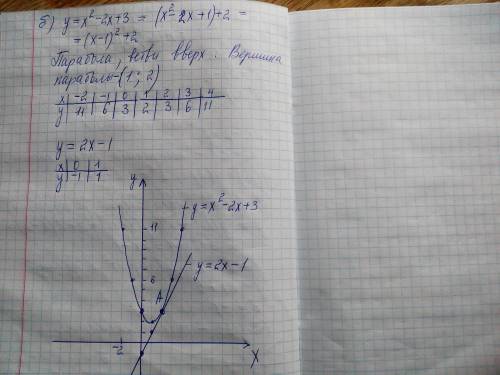 б) y = x² - 2x + 3 = (x² - 2x + 1) + 2 =
= (x - 1)² + 2
Парабола, ветви вверх. Вершина
параболы - (1; 2)
x | -2 | -1 | 0 | 1 | 2 | 3 | 4
y | 11 | 6 | 3 | 2 | 3 | 6 | 11
y = 2x - 1
x | 0 | 1
y | -1 | 1
y
y = x² - 2x + 3
11
y = 2x - 1
6
A
-2
x